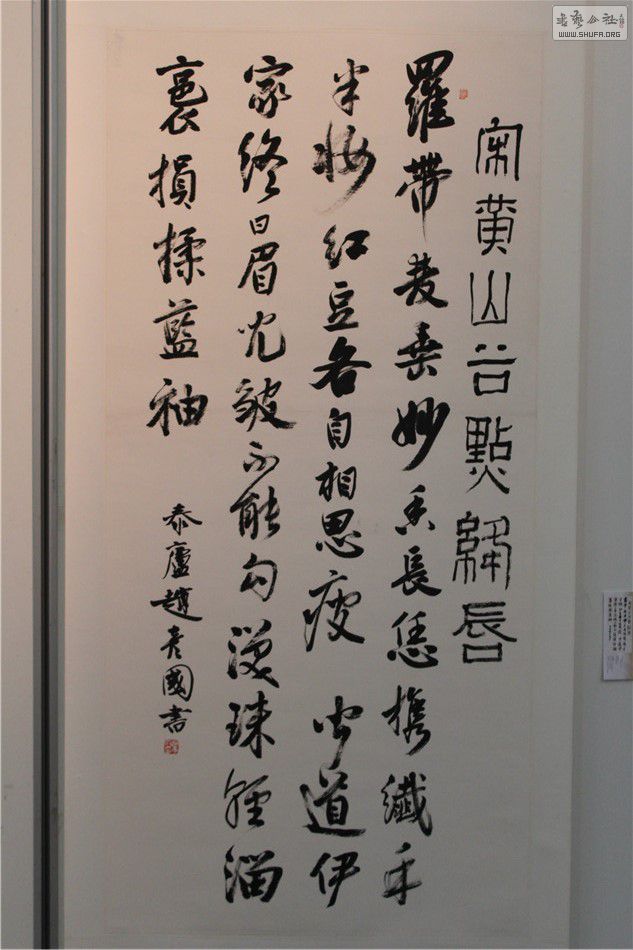 書藝公社
WWW.SHUFA.ORG
宋黄山谷點絳唇
羅帶雙垂妙香長恁携纖手
半妝紅豆各自相思瘦聞道伊
家終日眉兒皺不能勾淚珠輕溜
裛損揉藍袖
泰廬趙彥國書